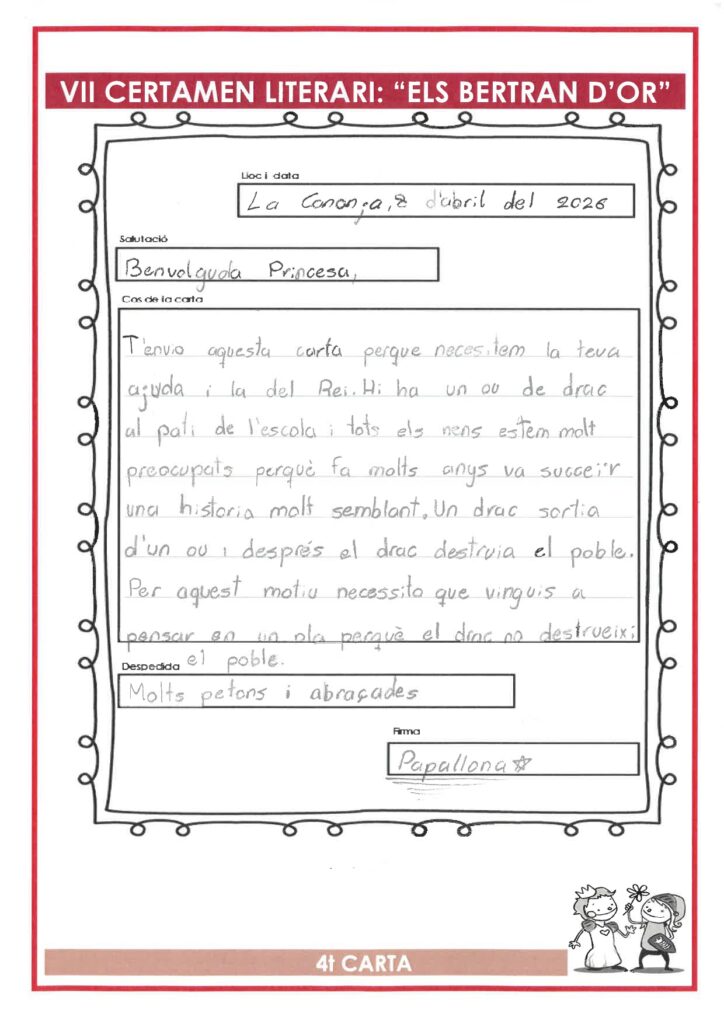 VII CERTAMEN LITERARI: “ELS BERTRAN D’OR”
Lloc i data
La Cananja, 8 d'abril del 2026
Salutació
Benvolguda Princesa,
Cos de la carta
T'envio aquesta carta perque necessitem la teva
ajuda i la del Rei. Hi ha un ou de drac
al pati de l'escola i tots els nens estem molt
preocupats perquè fa molts anys va succeir
una historia molt semblant. Un drac sortia
d'un ou i després el drac destruia el poble.
Per aquest motiu necessito que vinguis a
pensar en un pla perquè el drac no destrueixi
el poble.
Despedida
Molts petons i abraçades
Firma
Papallona
4t CARTA